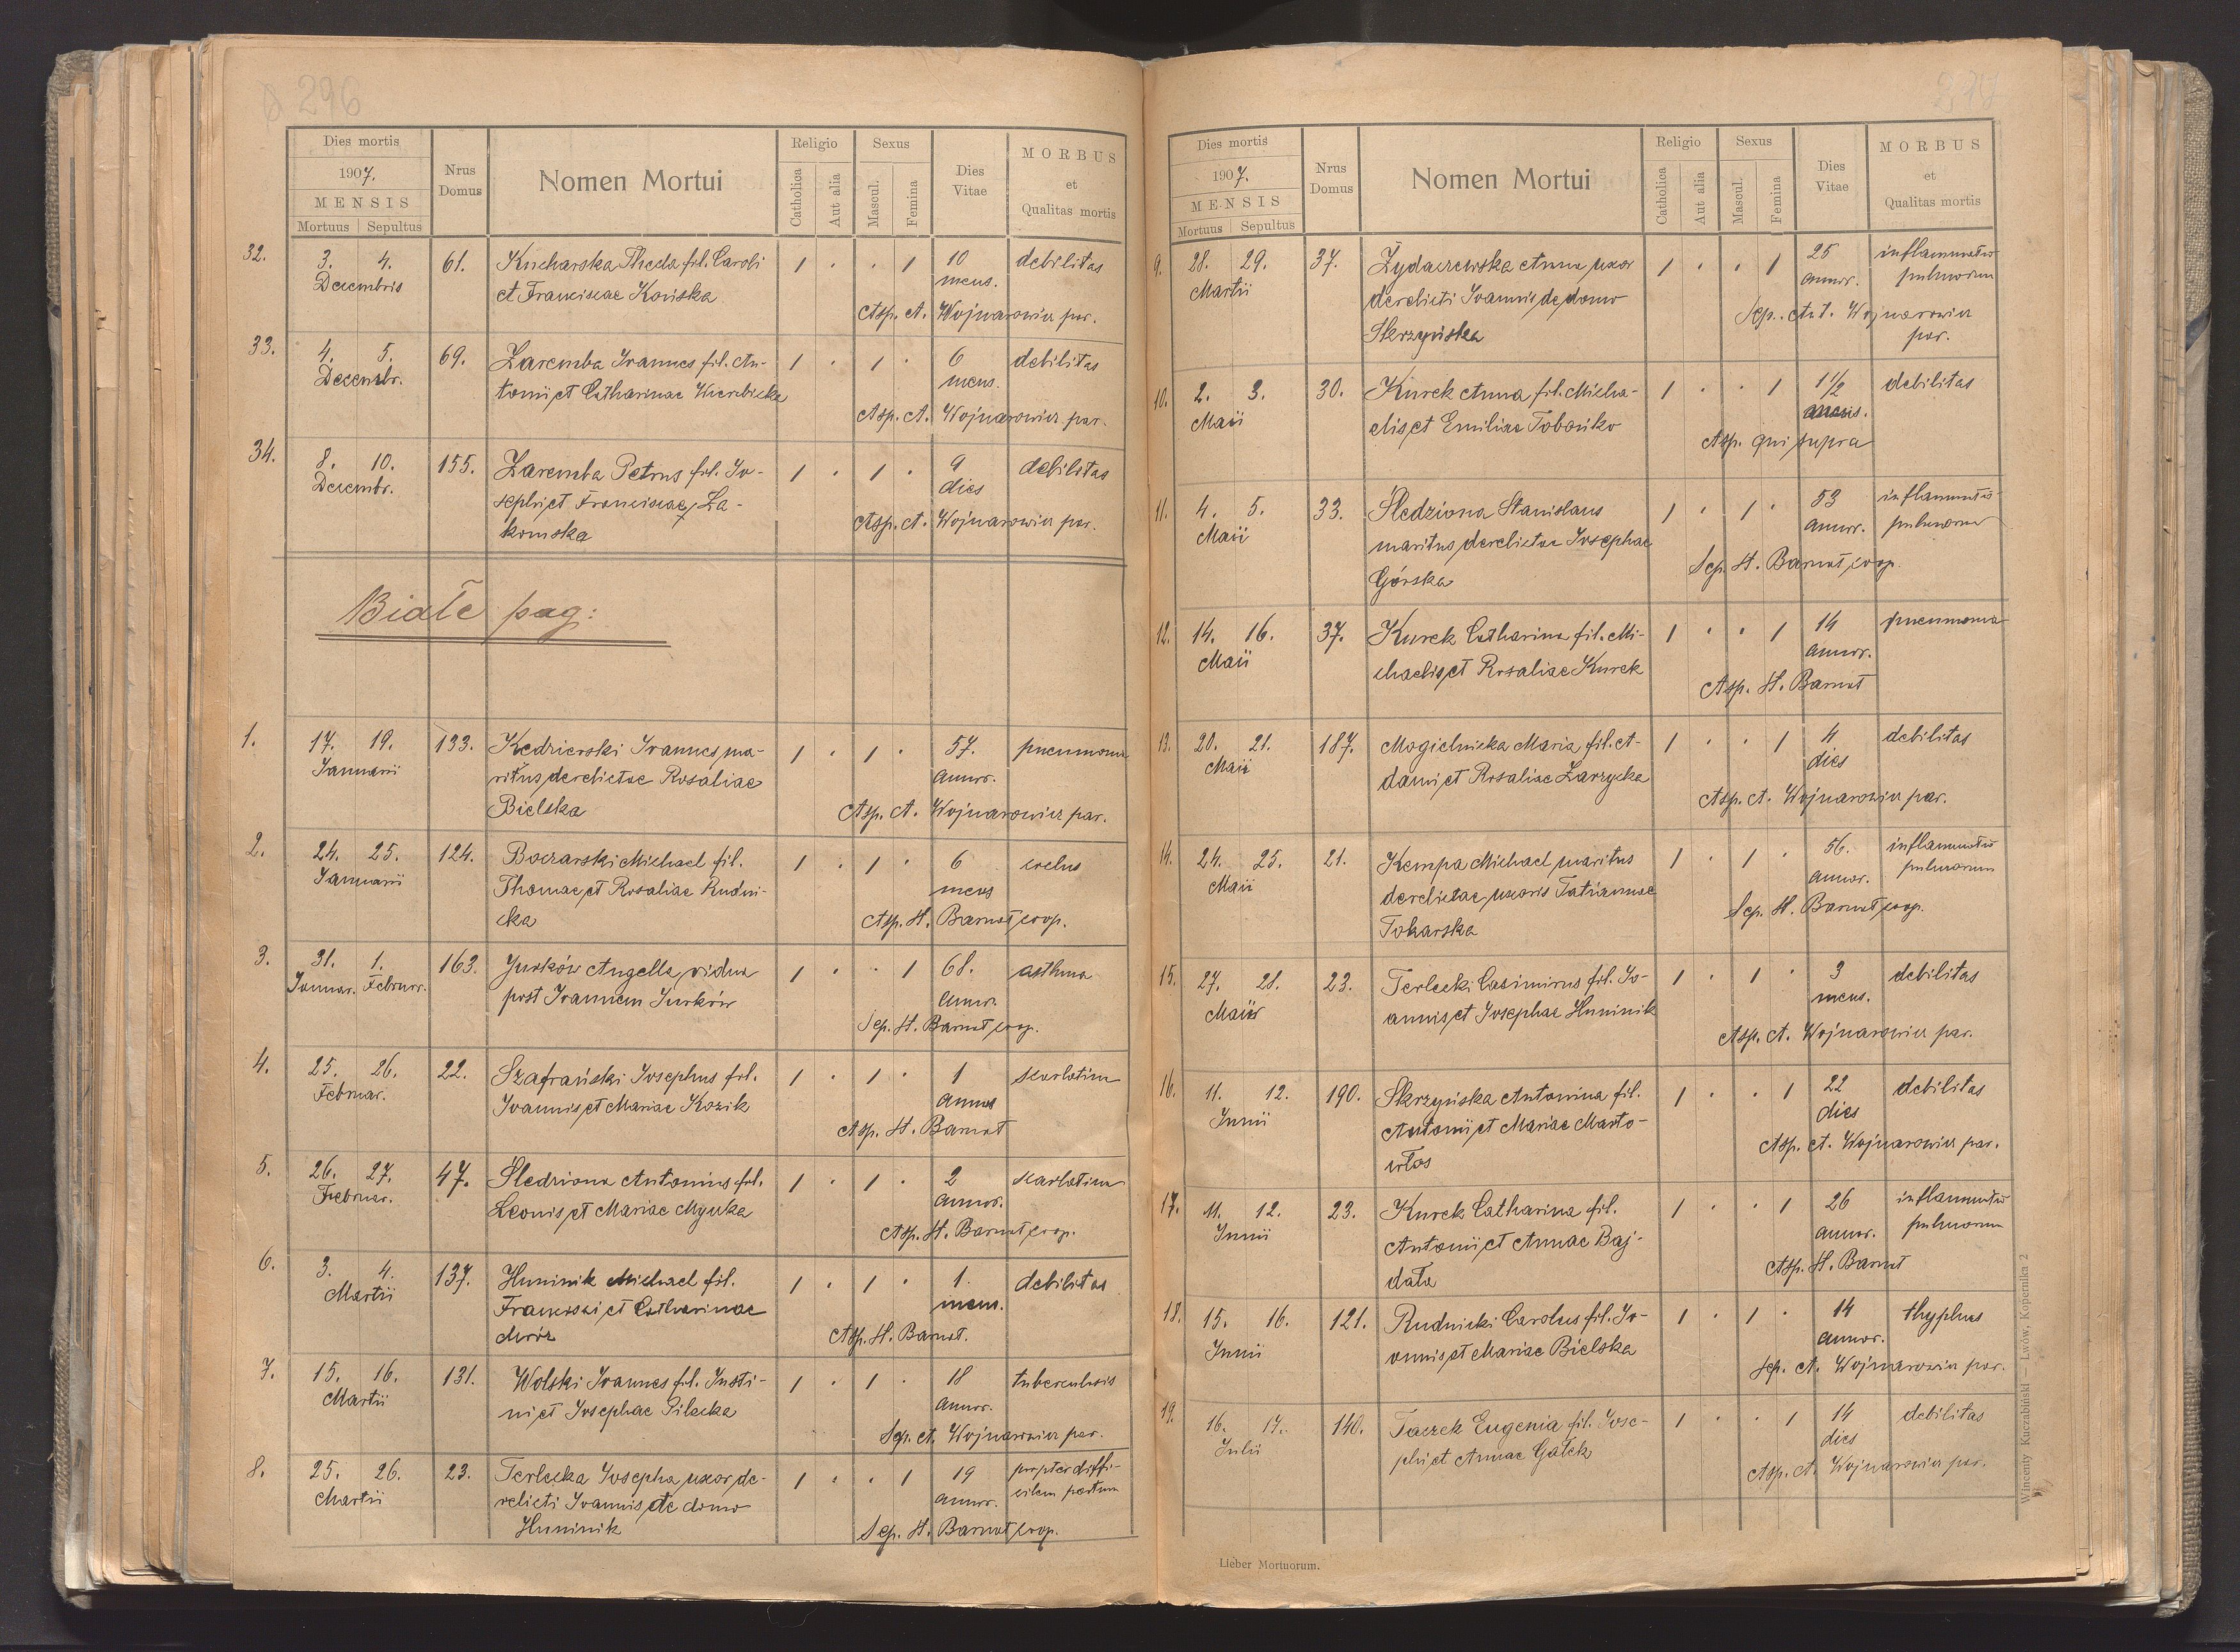 296
Dies mortis
1907.
MENSIS
Mortuus Sepultus
Nrus Domus
Nomen Mortui
Religio
Catholica
Aut alia
Sexus
Mascul.
Femina
Dies Vitae
MORBUS
et
Qualitas mortis
32. 3. 4. 61. Kucharska Thecla fil. Caroli 1 . . 1 10 debilitas
Decembris et Franciscae Końska mens.
Asp. A. Wojnarowicz par.
33. 4. 5. 69. Zaremba Joannes fil. An- 1 . 1 . 6 debilitas
Decembr. tonii, et Catharinae Wierzbicka mens.
Asp. A. Wojnarowicz par.
34. 8. 10. 155. Zaremba Petrus fil. Jo- 1 . 1 . 9 debilitas
Decembr. sephi, et Franciscae Za- dies
komska Asp. A. Wojnarowicz par.
Białe pag:
1. 17. 19. 133. Kędzierski Joannes, ma- 1 . 1 . 57. pneumonia
Januarii ritus derelictae Rosaliae annor.
Bielska Asp. A. Wojnarowicz par.
2. 24. 25. 124. Boczarski Michael fil. 1 . 1 . 6
Januarii Thomae, et Rosaliae Rudni- mens
cka Asp. H. Barnat, coop.
3. 31. 1. 163. Jurków Angella, vidua 1 . . 1 68. asthma
Januar. Februar. post Joannem Jurków annor.
Sep. H. Barnat, coop.
4. 25. 26. 22. Szafrański Josephus fil. 1 . 1 . 1 scarlatina
Februar. Joannis, et Mariae Kozik annus
Asp. H. Barnat
5. 26. 27. 47. Śledziona Antonius fil. 1 . 1 . 2 scarlatina
Februar. Leonis, et Mariae Mycka annor.
Asp. H. Barnat, coop.
6. 3. 4. 137. Huminik Michael fil. 1 . 1 . 1. debilitas
Martii Francisci, et Catharinae mens.
Mróz Asp. H. Barnat.
7. 15. 16. 131. Wolski Joannes fil. Justi- 1 . 1 . 18 tuberculosis
Martii ni, et Josephae Pilecka annor.
Sep. A. Wojnarowicz par.
8. 25. 26. 23. Terlecka Josepha, uxor, de- 1 . . 1 19 propter diffi-
Martii relicti Joannis, de domo annor. cilem partum
Huminik Sep. H. Barnat, coop.
Dies mortis
1907.
MENSIS
Mortuus Sepultus
Nrus Domus
Nomen Mortui
Religio
Catholica
Aut alia
Sexus
Mascul.
Femina
Dies Vitae
MORBUS
et
Qualitas mortis
9. 28. 29. 37. Żydaczewska Anna uxor 1 . . 1 25 inflammatio
Martii derelicti Joannis, de domo annor. pulmorum
Skrzyńska Sep. A. Wojnarowicz
par.
10. 2. 3. 30. Kurek Anna fil. Micha- 1 . . 1 1 1/2 debilitas
Maii elis, et Emiliae Tobońko
Asp. qui supra
11. 4. 5. 33. Śledziona Stanislaus 1 . 1 . 53 inflammatio
Maii maritus, derelictae Josephae annor. pulmorum
Górska Sep. H. Barnat, coop.
12. 14. 16. 37. Kurek Catharina fil. Mi- 1 . . 1 14 pneumonia
Maii chaelis, et Rosaliae Kurek annor.
Asp. H. Barnat
13. 20. 21. 187. Mogielnicka Maria fil. A- 1 . . 1 4 debilitas
Maii dami, et Rosaliae Zarzycka dies
Asp. A. Wojnarowicz par.
14. 24. 25. 21. Kempa Michael, maritus 1 . 1 . 56. inflammatio
Maii derelictae, uxoris Tatiannae annor. pulmorum
Tokarska Sep. H. Barnat, coop.
15. 27. 28. 23. Terlecki Casimirus fil. Jo- 1 . 1 . 3 debilitas
Maii annis, et Josephae Huminik mens.
Asp. A. Wojnarowicz par.
16. 11. 12. 190. Skrzyńska Antonina fil. 1 . . 1 22 debilitas
Junii Antonii, et Mariae Marto- dies
włos Asp. A. Wojnarowicz par.
17. 11. 12. 23. Kurek Catharina fil. 1 . . 1 26 inflammatio
Junii Antonii, et Annae Baj- annor. pulmorum
data Asp. H. Barnat
18. 15. 16. 121. Rudnicki Carolus fil. Jo- 1 . 1 . 14 thyphus
Junii annis, et Mariae Bielska annor.
Sep. A. Wojnarowicz par.
19. 16. 17. 140. Taczek Eugenia fil. Jose- 1 . . 1 14 debilitas
Julii phi, et Annae Gałek dies
Asp. A. Wojnarowicz par.
Lieber Mortuorum.
Wincenty Kuczabiński — Lwów, Kopernika 2